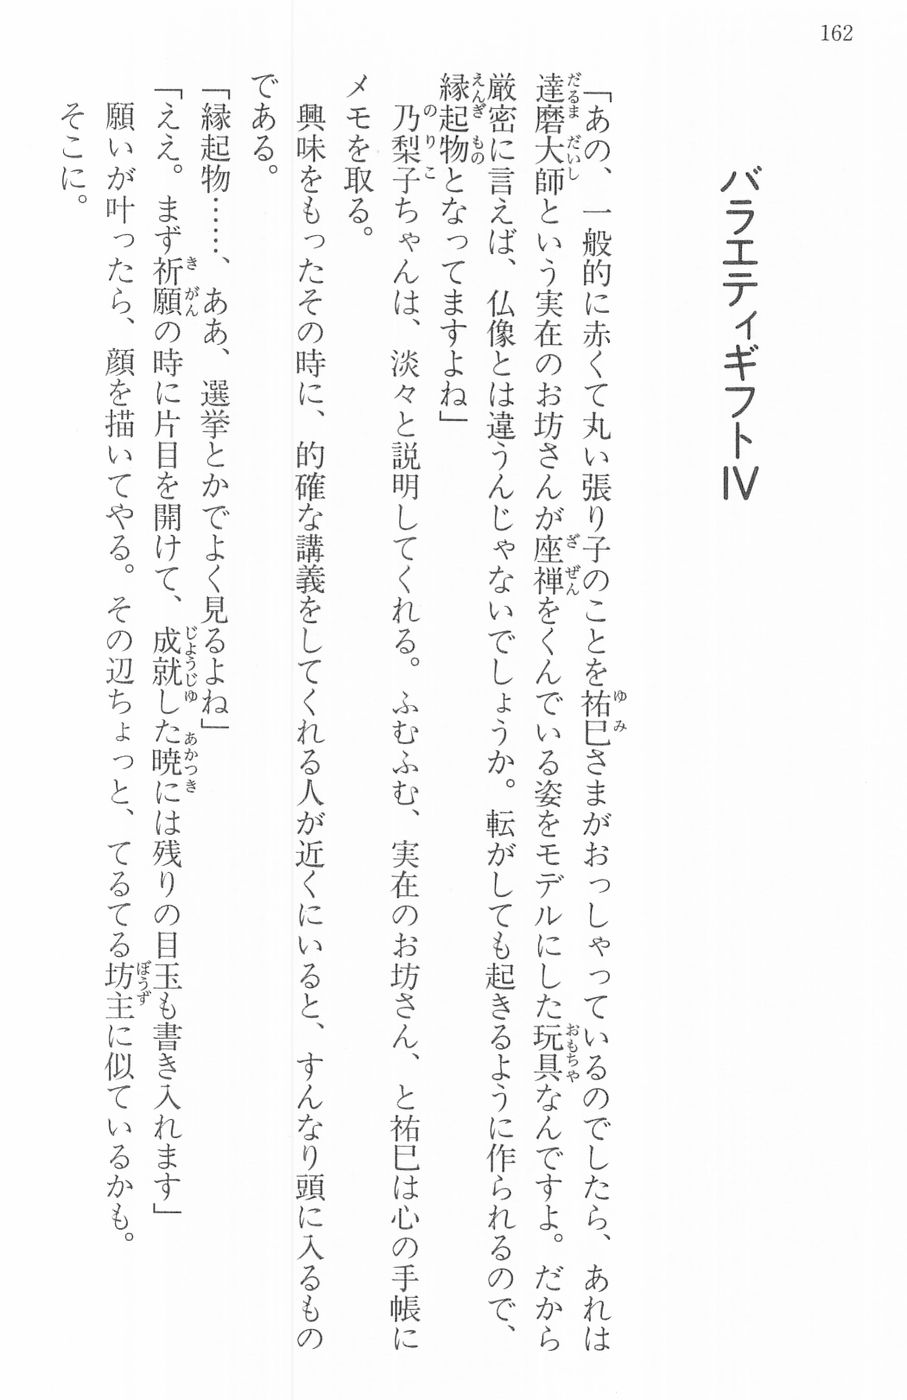 162
バラエティギフトⅣ
「あの、一般的に赤くて丸い張り子のことを祐巳さまがおっしゃっているのでしたら、あれは
達磨大師という実在のお坊さんが座禅をくんでいる姿をモデルにした玩具なんですよ。だから
厳密に言えば、仏像とは違うんじゃないでしょうか。転がしても起きるように作られるので、
縁起物となってますよね」
乃梨子ちゃんは、淡々と説明してくれる。ふむふむ、実在のお坊さん、と祐巳は心の手帳に
メモを取る。
興味をもったその時に、的確な講義をしてくれる人が近くにいると、すんなり頭に入るもの
である。
「縁起物……、ああ、選挙とかでよく見るよね」
「ええ。まず祈願の時に片目を開けて、成就した暁には残りの目玉も書き入れます」
願いが叶ったら、顔を描いてやる。その辺ちょっと、てるてる坊主に似ているかも。
そこに。